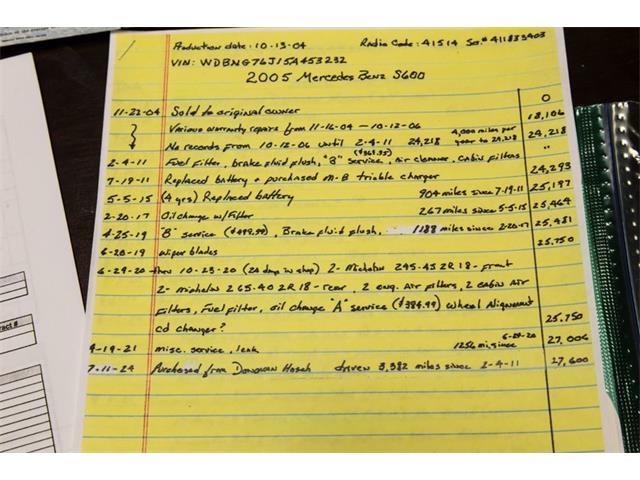 Production date: 10-13-04 Radio Code: 41514 Ser.# 411833903
VIN: WDBNG76J15A453232
2005 Mercedes Benz S600
0
11-22-04 Sold to original owner 18,106
Various warranty repairs from 11-16-04 – 10-12-06 4,000 miles per year to 24,218 24,218
No records from 10-12-06 until 2-4-11 24,218 "
2-4-11 Fuel filter, brake fluid flush, "B" service, Air cleaner, cabin filters
7-19-11 Replaced battery + purchased M-B trickle charger 24,293
5-5-15 (4 yrs) Replaced battery 904 miles since 7-19-11 25,197
2-20-17 Oil change w/Filter 267 miles since 5-5-15 25,464
4-25-19 "B" service ($499.99), Brake fluid flush, 1188 miles since 2-20-17 25,481
6-20-19 wiper blades 25,750
6-29-20 thru 10-23-20 (24 days in shop) 2- Michelin 245-45 ZR 18 - front
2- michelin 265-40 ZR 18 - rear, 2 eng. air filters, 2 cabin air
filters, Fuel filter, oil change "A" service ($384.99) Wheel Alignment
cd changer? 25,750
4-19-21 misc. service, leak 1256 mi. since 6-29-20 27,006
7-11-24 Purchased from Donovan driven 3,382 miles since 2-4-11 27,600